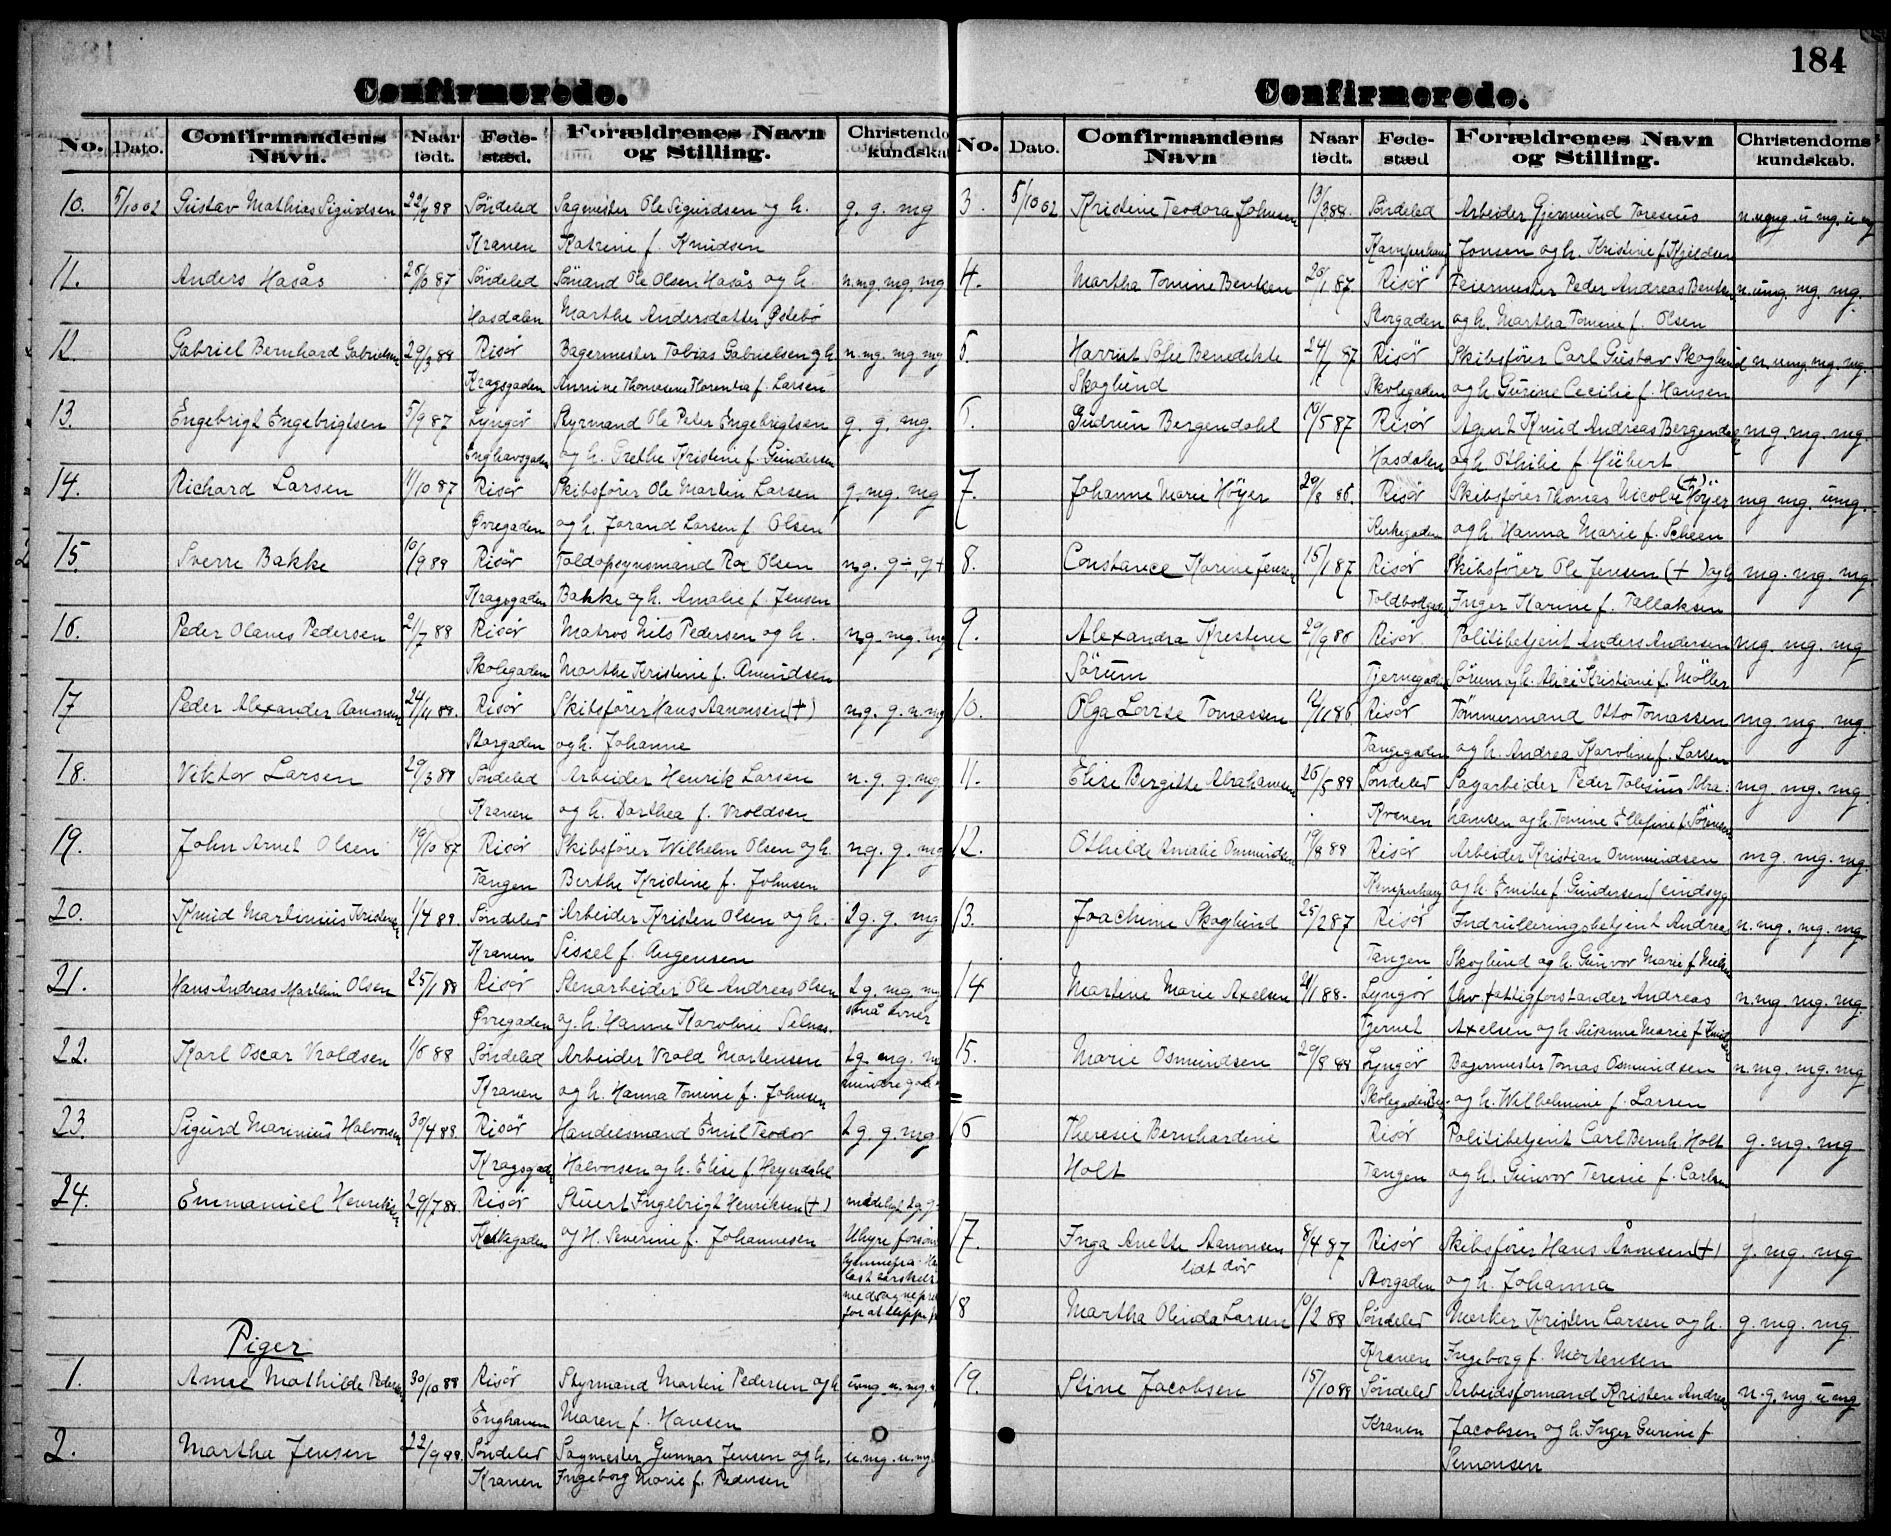 184
Confirmerede.
No. Dato. Confirmandens Navn. Naar født. Føde-stæd. Forældrenes Navn og Stilling. Christendo kundskab
10. 5/10 02 Gustav Mathias Sigurdsen 22/4 88 Söndeled Sagmester Ole Sigurdsen og h. g. g. mg
Kranen Katrine f. Knudsen
11. Anders Hasås 87 Söndeled Sömand Ole Olsen Hasås og h. n.mg. mg. mg
Hasdalen Marthe Andersdatter Østebø
12. Gabriel Bernhard Gabrielsen 29/3 88 Risör Bagermester Tobias Gabrielsen og h. n.mg. mg mg
Kragsgaden Annine Thomasine Florentia f. Larsen
13. Engebrigt Engebrigtsen 5/9 87 Lyngör Styrmand Ole Peter Engebrigtsen g. g. mg.
Enghavsgaden og h. Grethe Kristine f. Gundersen
14. Richard Larsen 11/10 87 Risör Skibsfører Ole Martin Larsen g. mg. mg
Øvregaden og h. Jorand Larsen f. Olsen
15. Sverre Bakke 10/9 88 Risör Toldopsynsmand Olsen ng. g÷, g+
Kragsgaden Bakke og h. Amalie f. Jensen
16. Peder Olaves Pedersen 21/7 88 Risör Matros Nils Pedersen og h. ng. mg. mg
Skolegaden Marthe Kristine f. Amundsen
17 Peder Alexander Aanonsen 24/11 88. Risör Skibsfører Hans Aanonsen (+) ng. g. n.mg
Storgaden og h. Johanne
18. Viktor Larsen 29/3 88 Söndeled Arbeider Henrik Larsen n.g. g. mg.
Kranen og h. Dorthea f. Vroldsen
19. John Arnet Olsen 19/10 87 Risör Skibsfører Wilhelm Olsen og h. ng. g. mg
Tangen Berthe Kristine f. Johnsen
20. Knud Martinius Kristensen 1/4 88. Söndeled Arbeider Kristen Olsen og h. 2g. g. mg
Kranen Sissel f. Augensen
21. Hans Andreas Marthin Olsen 25/1 88 Risör Stenarbeider Ole Andreas Olsen 2g. mg. m
Øvregaden og h. Hanne Karoline Selnes. små evner
22. Karl Oscar Vroldsen 1/6 88 Söndeled Arbeider Vrold Mortensen 2g. mg. mg
Kranen og h. Hanna Tomine f. Johnsen mindre gode
23. Sigurd Marinius Halvorsen 30/4 88. Risör Handelsmand Emil Teodor 2g. g. mg
Kragsgad Halvorsen og h. Elise f. Heyerdahl
24. Emmanuel Henriksen 29/7 88. Risör Stuert Ingebrigt Henriksen (+) mådeligt 2g. g.
Kirkegaden og H. Severine f. Johannesen Uhyre
Piger
1. Anne Mathilde Pedersen 30/10 88 Risör Styrmand Martin Pedersen og h. umg. n.mg.
Enghaven Maren f. Hansen
2. Martha Jensen 22/9 88. Söndeled Sagmester Gunnar Jensen og h. u.mg. u.mg
Kranen Ingeborg Marie f. Pedersen
Confirmerede.
No. Dato. Confirmandens Navn Naar født. Føde-stæd Forældrenes Navn og Stilling. Christendoms kundskab.
3. 5/10 02 Kristine Teodora Johnsen 13/3 88. Söndeled Arbeider Gjermund Toresius n.umg. u mg. u mg
Kamperhaug Jonsen og h. Kristine f. Kjeldsen
4. Martha Tomine Bentsen 87. Risör Feiermester Peder Andreas Bentsen n.umg. mg. mg.
Storgaden og h. Martha Tomine f. Olsen
5. Harriet Sofie Benedikte 24/ 87 Risör Skibsfører Carl Gustav Skoglund n. umg mg. mg.
Skoglund Skolegaden og h. Gurine Cecilie f. Hansen
6. Gudrun Bergendahl 10/5 87 Risör Agent Knud Andreas Bergendahl mg. mg. mg.
Hasdalen og h. Othilie f Hübert
7. Johanne Marie Höyer 20/8 86. Risör Skibsfører Thomas Nicolai (+) Höyer mg mg. umg.
Kirkegaden og h. Hanna Marie f. Scheen
8. Constance Karine Jensen 15/1 87 Risör Skibsfører Ole Jensen (+) og h mg. mg. mg
Toldbodgad Inger Karine f. Tallaksen
9. Alexandra Kristine 29/9 86 Risör Politibetjent Anders Andersen mg mg. mg
Sørum Tjernegaden Sørum og h. Alice Kristiane f. Möller
10. Olga Lovise Tomassen 12/11 86 Risör Tömmermand Otto Tomassen mg mg. mg.
Tangegaden og h. Andrea Karoline f. Larsen
11. Elise Bergitte Abrahamsen 88 Söndeled Sagarbeider Peder Tobesius Abra- mg. mg. mg.
Kranen hamsen og h. Tomine Ellefine f. Sörensen
12. Othilde Amalie Ommundsen 19/8 88 Risör Arbeider Kristian Ommundsen mg. mg. mg.
Kamperhaug og h. Emilie f. Gundersen (sindsyg
13. Joachime Skoglund 25/2 87 Risör Indrulleringsbetjent Andreas n. mg. mg. mg
Tangen Skoglund og h. Gunvor Marie f. Nielsen
14 Martine Marie Axelsen 21/1 88. Lyngör Uhv. fattigforstander Andreas n.mg mg. mg.
Tjernet Axelsen og h. Susanne Marie f. Knudsen
15. Marie Osmundsen 29/8 88 Lyngör Bagermester Tomas Osmundsen n. mg. mg. mg
Skolegaden og h. Wilhelmine f. Larsen
16 Theresie Bernhardine Risör Politibetjent Carl Bernh. Holt g. mg. mg
Holt Tangen og h. Gunvor Teresie f. Carlsen
17. Inga Anette Aanonsen 8/4 87 Risör Skibsfører Hans Ånonsen (+) g. mg. mg
lidt döv Storgaden og h. Johanna
18 Martha Olinda Larsen 10/2 88 Söndeled Mærker Kristen Larsen og h. g. mg. mg
Kranen Ingeborg f. Mortensen
19. Stine Jacobsen 15/10 88 Söndeled Arbeidsformand Kristen Andreas n.g. mg. u mg
Kranen Jacobsen og h. Inger Gurine f
Simonsen